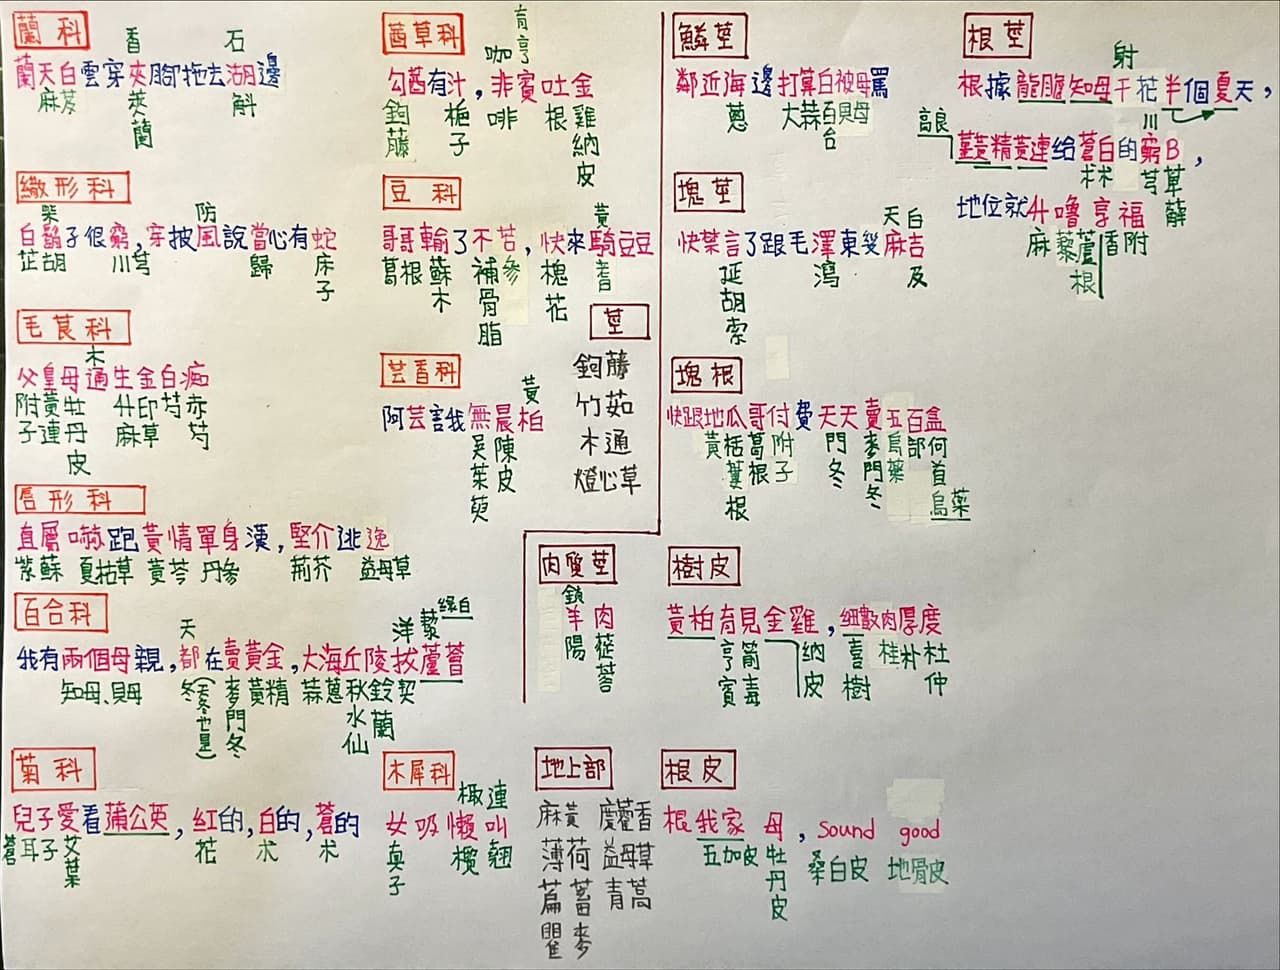 蘭科
香　石
蘭天白雲穿夾腳拖去湖邊
麻芨　莢蘭　斛
繖形科
柴　防
白鬍子很窮，穿披風說當心有蛇
芷胡　川芎　歸　床子
毛茛科
木
父皇母通生金白痴
附子　黃連　牡丹皮　升麻　印草　芍　赤芍
唇形科
直層嚇跑黃情單身漢，堅介逃逸
紫蘇　夏枯草　黃芩　丹參　荊芥　益母草
百合科
天　洋　藜　綠白
我有兩個母親，都在賣黃金，大海丘陵拔蘆薈
知母、貝母　冬(天冬也是)　麥門冬　黃精　蒜　蔥　秋水仙　鈴蘭　契
菊科
兒子愛看蒲公英，紅的，白的，蒼的
蒼耳子　艾葉　花　朮　朮
茜草科
咖　育亨
勾茜有汁，非賓吐金
鉤藤　梔子　啡　根　雞納皮
豆科
黃
哥哥輸了不苦，快來騎豆豆
葛根　蘇木　補骨脂　參　槐花　耆
芸香科
黃
阿芸害我無晨柏
吳茱萸　陳皮
莖
鉤藤
竹茹
木通
燈心草
肉質莖
鎖
羊肉
陽　蓯蓉
木犀科
椒　連
女吸懶叫
貞子　欖　翹
地上部
麻黃　廣藿香
薄荷　益母草
萹蓄　青蒿
瞿麥
鱗莖
鄰近海邊打算白被母罵
蔥　大蒜　百合　貝母
塊莖
天　白
快禁言了跟毛澤東幾麻吉
延胡索　瀉　及
塊根
快跟地瓜哥付費天天賣五百盒
黃　栝蔞根　葛根　附子　門冬　麥門冬　烏藥　部　何首烏藥
樹皮
黃柏育見金雞，細數肉厚度
亨賓　箭毒　納皮　喜樹　桂　朴　杜仲
根皮
根我家母，sound good
五加皮　牡丹皮　桑白皮　地骨皮
根莖
射
根據龍膽知母干花半個夏天，
高良　川
薑黃精黃連給蒼白的窮B，
朮朮　芎　草薢
地位就升嚕享福
麻　藜蘆根　香附